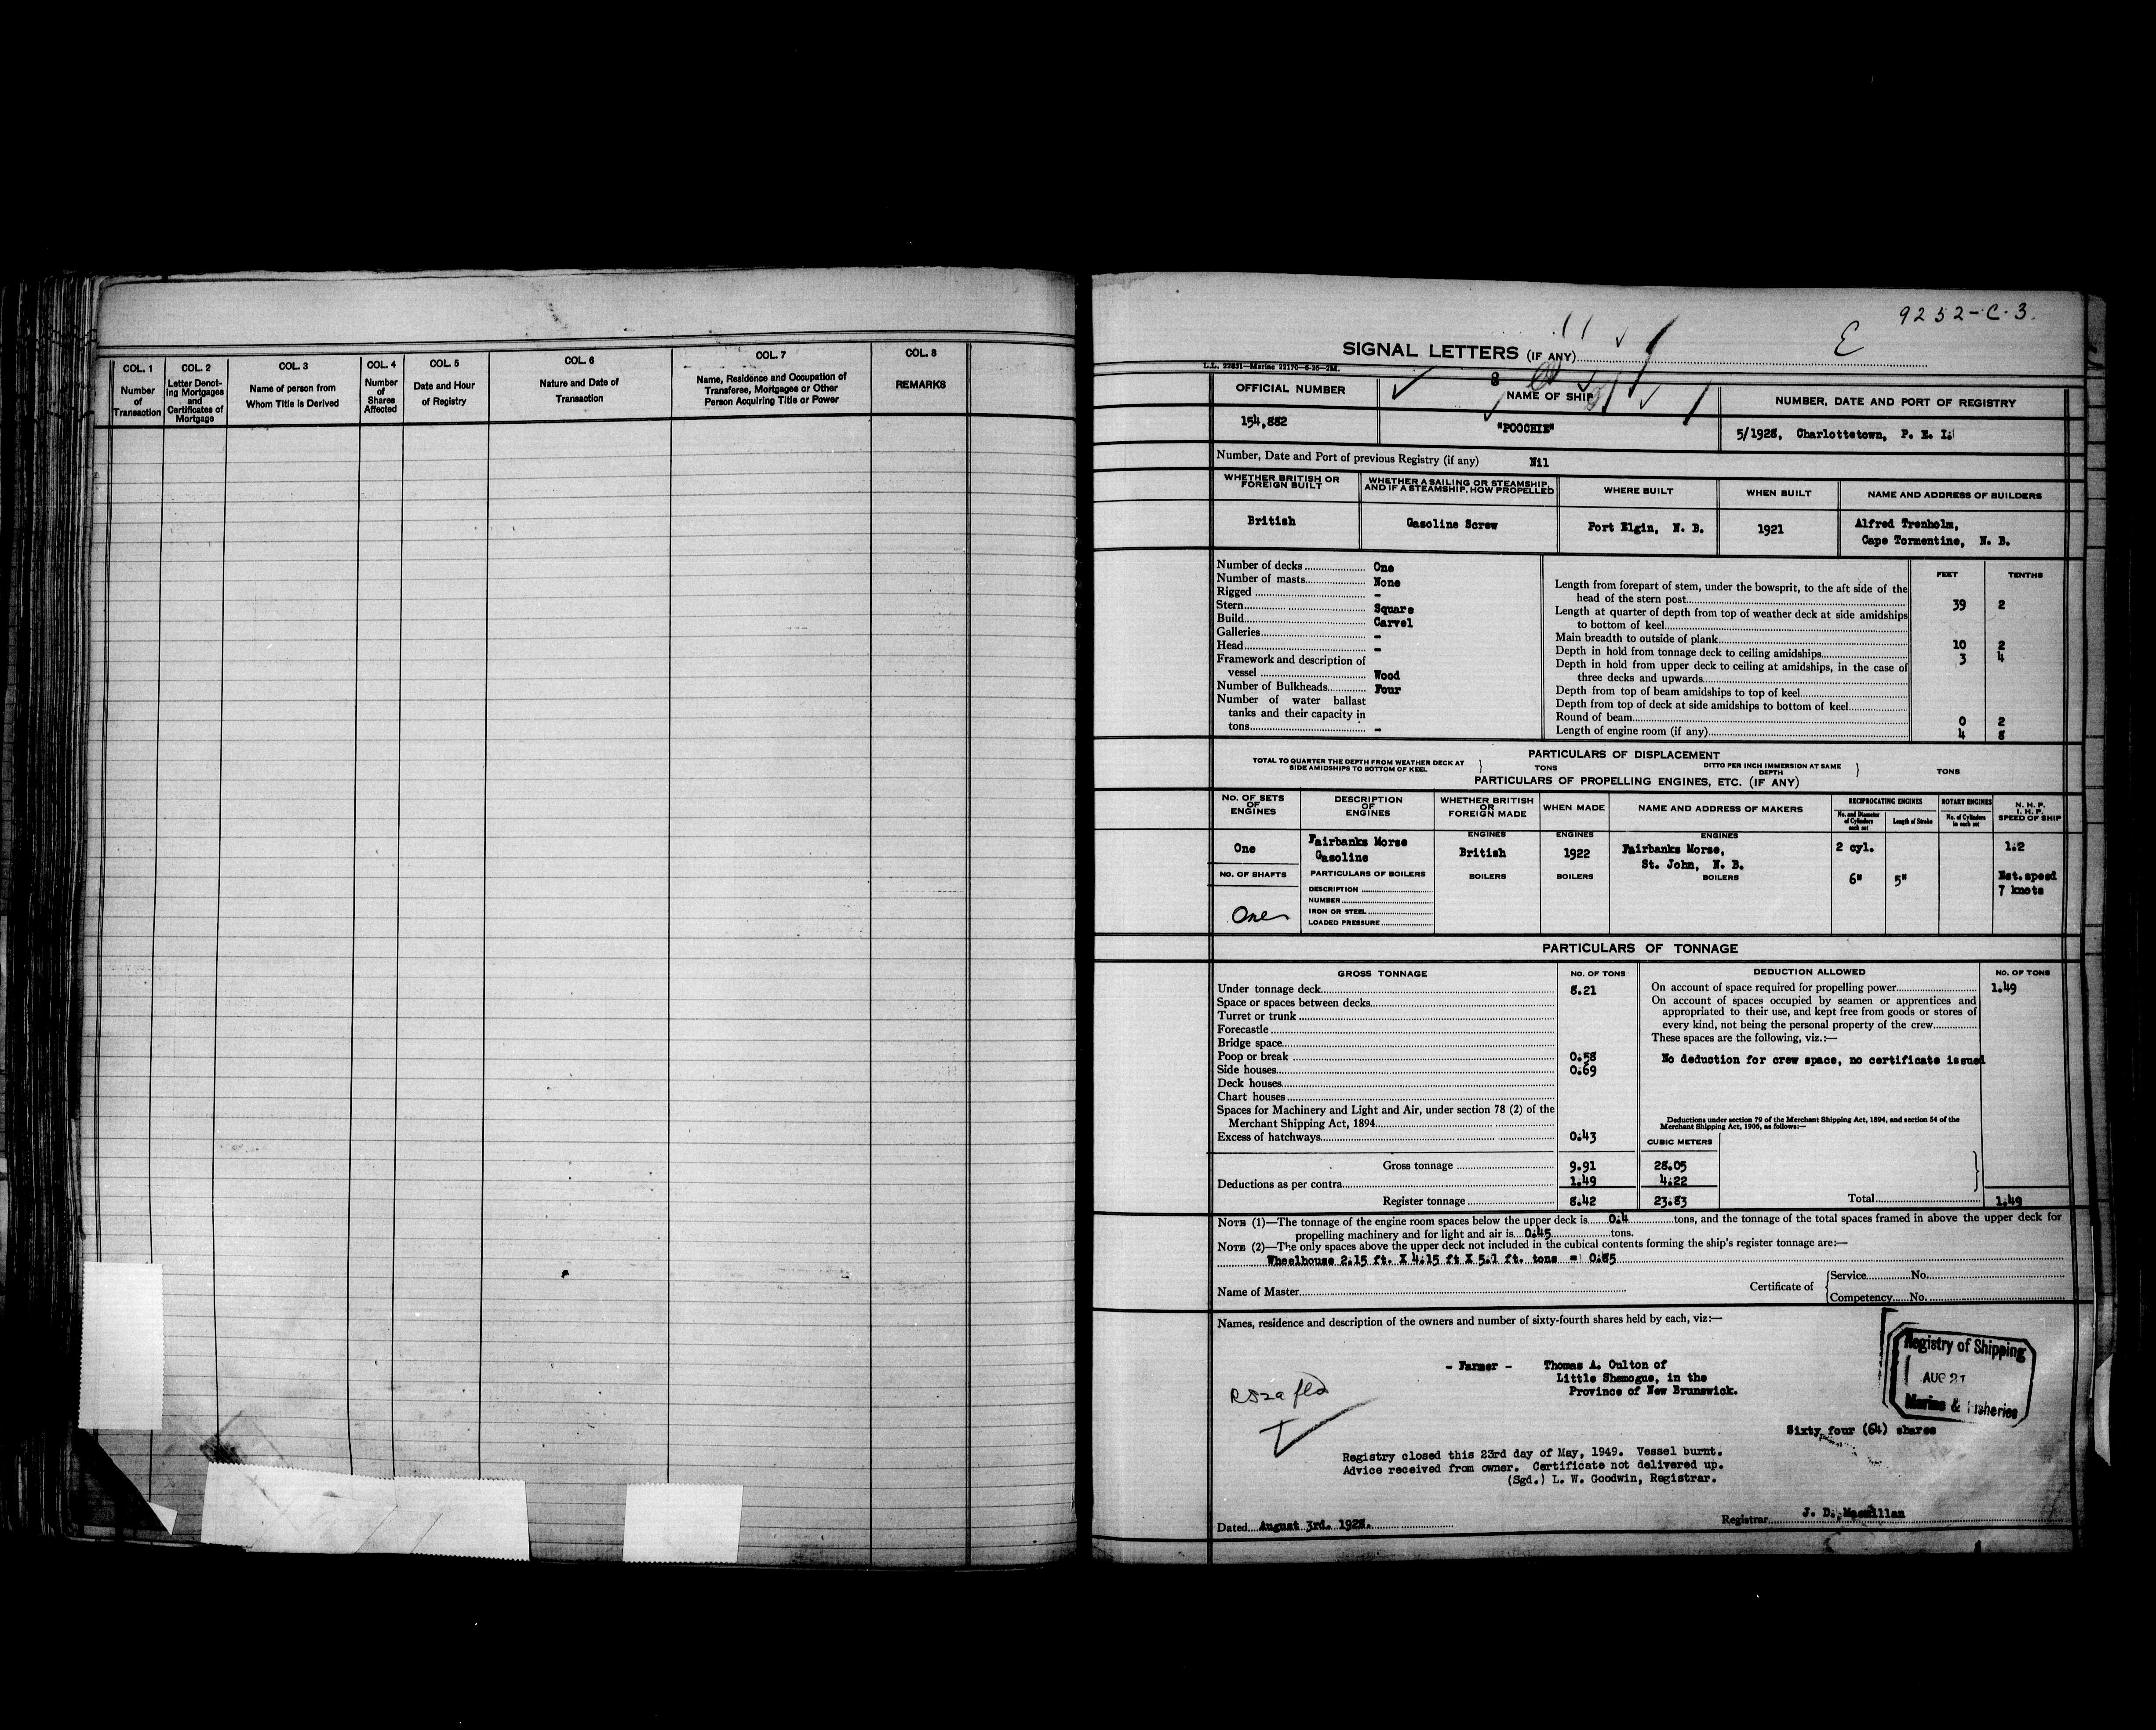 COL. 1
Number
of
Transaction
COL. 2
Letter Denot-
ing Mortgages
and
Certificates of
Mortgage
COL. 3
Name of person from
Whom Title is Derived
COL. 4
Number
of
Shares
Affected
COL. 5
Date and Hour
of Registry
COL. 6
Nature and Date of
Transaction
COL. 7
Name, Residence and Occupation of
Transferee, Mortgagee or Other
Person Acquiring Title or Power
COL. 8
REMARKS
9252-C.3.
E
SIGNAL LETTERS (IF ANY)
L.L. 22831—Marine 22170—6-26—2M.
8
OFFICIAL NUMBER
NAME OF SHIP
NUMBER, DATE AND PORT OF REGISTRY
154,882
"POOCHIE"
5/1928, Charlottetown, P. E. I.
Number, Date and Port of previous Registry (if any) Nil
WHETHER BRITISH OR
FOREIGN BUILT
WHETHER A SAILING OR STEAMSHIP,
AND IF A STEAMSHIP, HOW PROPELLED
WHERE BUILT
WHEN BUILT
NAME AND ADDRESS OF BUILDERS
British
Gasoline Screw
Port Elgin, N. B.
1921
Alfred Trenholm,
Cape Tormentine, N. B.
Number of decks One
Number of masts None
Rigged -
Stern Square
Build Carvel
Galleries -
Head -
Framework and description of
vessel Wood
Number of Bulkheads Four
Number of water ballast
tanks and their capacity in
tons -
FEET TENTHS
Length from forepart of stem, under the bowsprit, to the aft side of the
head of the stern post 39 2
Length at quarter of depth from top of weather deck at side amidships
to bottom of keel
Main breadth to outside of plank 10 2
Depth in hold from tonnage deck to ceiling amidships 3 4
Depth in hold from upper deck to ceiling at amidships, in the case of
three decks and upwards
Depth from top of beam amidships to top of keel
Depth from top of deck at side amidships to bottom of keel
Round of beam 0 2
Length of engine room (if any) 4 8
PARTICULARS OF DISPLACEMENT
TOTAL TO QUARTER THE DEPTH FROM WEATHER DECK AT
SIDE AMIDSHIPS TO BOTTOM OF KEEL
TONS
DITTO PER INCH IMMERSION AT SAME
DEPTH
TONS
PARTICULARS OF PROPELLING ENGINES, ETC. (IF ANY)
NO. OF SETS
OF
ENGINES
DESCRIPTION
OF
ENGINES
WHETHER BRITISH
OR
FOREIGN MADE
WHEN MADE
NAME AND ADDRESS OF MAKERS
RECIPROCATING ENGINES
No. and Diameter
of Cylinders
each set
Length of Stroke
ROTARY ENGINES
No. of Cylinders
in each set
N. H. P.
I. H. P.
SPEED OF SHIP
One
Fairbanks Morse
Gasoline
ENGINES
British
ENGINES
1922
ENGINES
Fairbanks Morse,
St. John, N. B.
2 cyl.
1.2
NO. OF SHAFTS
One
PARTICULARS OF BOILERS
DESCRIPTION
NUMBER
IRON OR STEEL
LOADED PRESSURE
BOILERS
BOILERS
BOILERS
6"
5"
Est. speed
7 knots
PARTICULARS OF TONNAGE
GROSS TONNAGE
NO. OF TONS
DEDUCTION ALLOWED
NO. OF TONS
Under tonnage deck 8.21
Space or spaces between decks
Turret or trunk
Forecastle
Bridge space
Poop or break 0.58
Side houses 0.69
Deck houses
Chart houses
Spaces for Machinery and Light and Air, under section 78 (2) of the
Merchant Shipping Act, 1894
Excess of hatchways 0.43
On account of space required for propelling power 1.49
On account of spaces occupied by seamen or apprentices and
appropriated to their use, and kept free from goods or stores of
every kind, not being the personal property of the crew
These spaces are the following, viz.:—
No deduction for crew space, no certificate issued
Deductions under section 79 of the Merchant Shipping Act, 1894, and section 54 of the
Merchant Shipping Act, 1906, as follows:—
CUBIC METERS
Gross tonnage 9.91 28.05
Deductions as per contra 1.49 4.22
Register tonnage 8.42 23.83
Total 1.49
NOTE (1)—The tonnage of the engine room spaces below the upper deck is 0.4 tons, and the tonnage of the total spaces framed in above the upper deck for
propelling machinery and for light and air is 0.45 tons.
NOTE (2)—The only spaces above the upper deck not included in the cubical contents forming the ship's register tonnage are:—
Wheelhouse 2.15 ft. X 4.15 ft X 5.1 ft. tons = 0.85
Name of Master
Certificate of
Service No.
Competency No.
Names, residence and description of the owners and number of sixty-fourth shares held by each, viz:—
Registry of Shipping
AUG 21
Marine & Fisheries
- Farmer - Thomas A. Oulton of
Little Shemogue, in the
Province of New Brunswick.
Sixty four (64) shares
Registry closed this 23rd day of May, 1949. Vessel burnt.
Advice received from owner. Certificate not delivered up.
(Sgd.) L. W. Goodwin, Registrar.
Dated August 3rd. 1928.
Registrar J. D. Macmillan